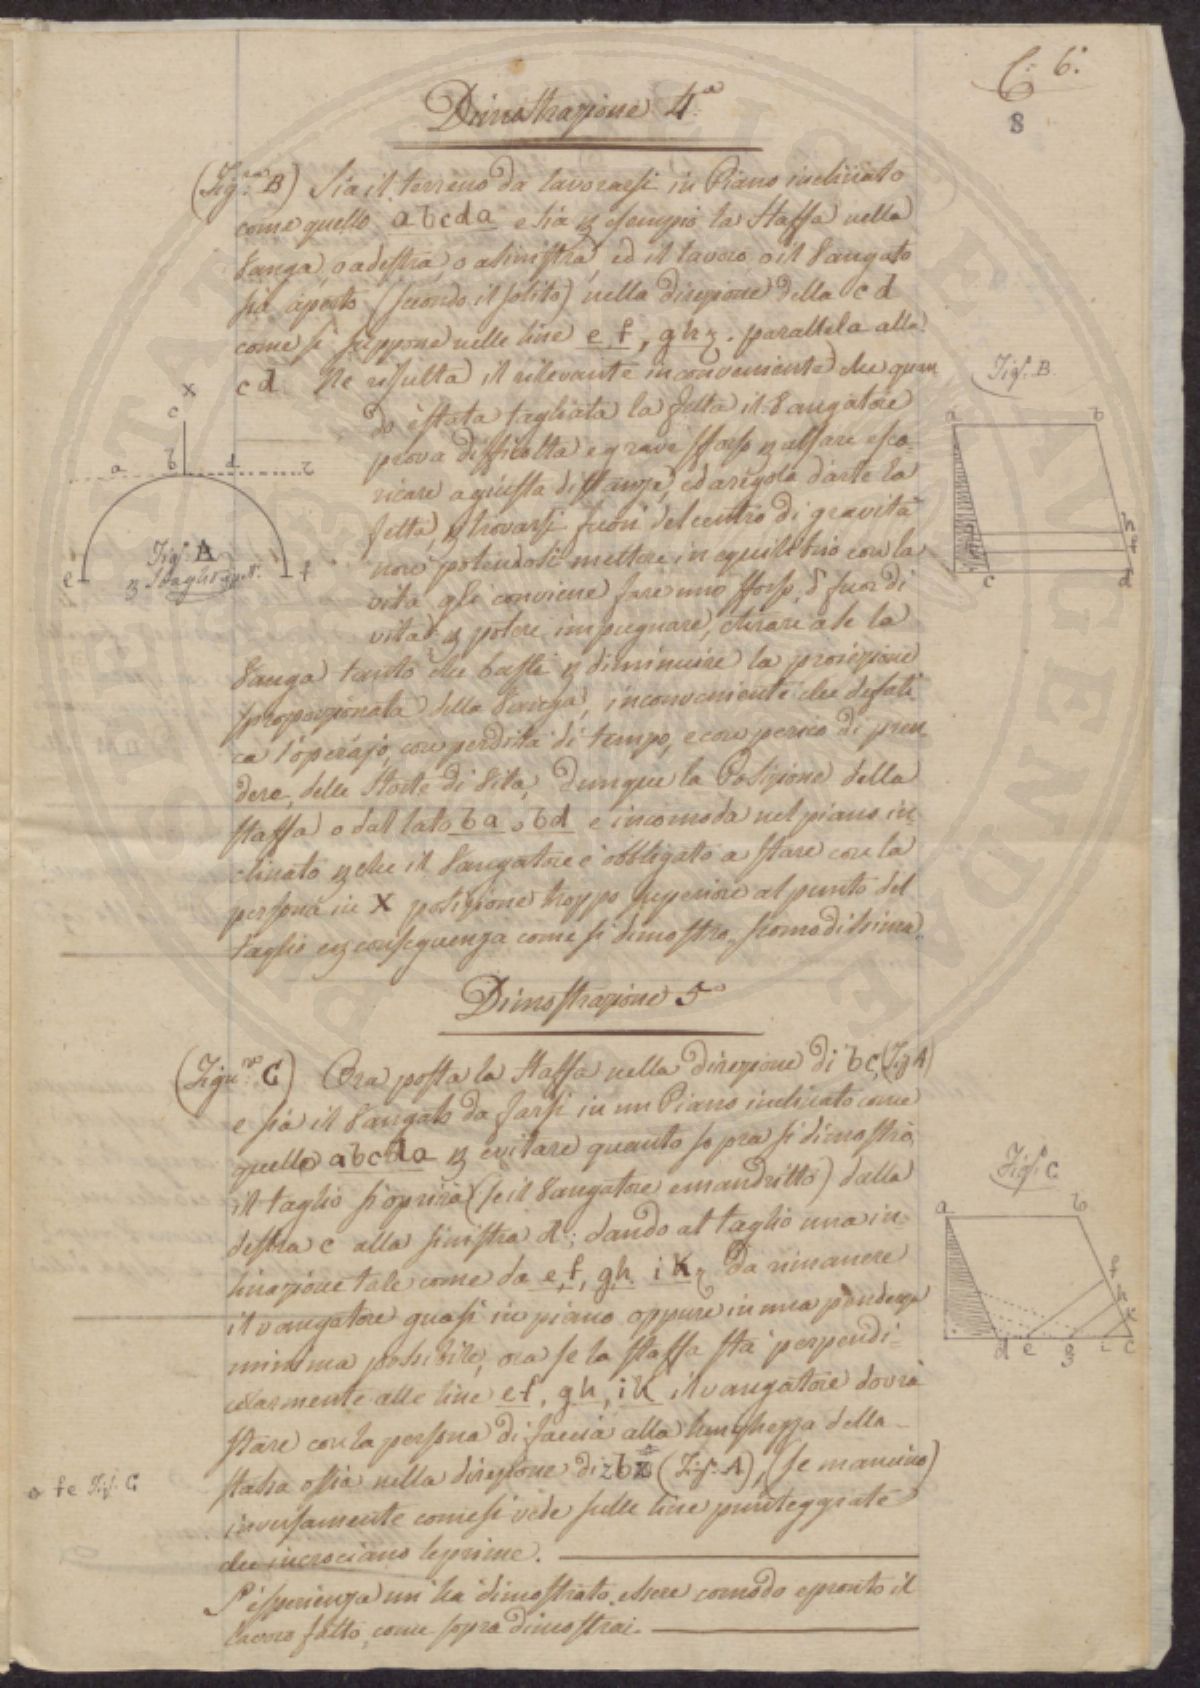 C. 6.
8
Dimostrazione 4.a
(Fig.ra B) Sia il terreno da lavorarsi in Piano inclinato
come quello abcda e sia p esempio la Staffa nella
Vanga, o adestra, o asinistra, ed il lavoro o il Vangato
sia aperto (secondo il solito) nella direzione della c d
come si suppone nelle linee e f, g h z. parallela alla
c d. Ne risulta il rilevante inconveniente che quan
do è stata tagliata la fetta il Vangatore
prova difficoltà e grave sforzo p alzare e sca-
ricare a giusta distanza, ed a regola d'arte la
fetta, p trovarsi fuori del centro di gravità
non potendosi mettere in equilibrio con la
vita gli conviene fare uno sforzo, di fuor di
vita p potere impugnare, e tirare a se la
Vanga tanto che basti p diminuire la proiezione
sproporzionata della Vanga, inconveniente che defati-
ca l'operajo, con perdita di tempo, e con perico di pren
dere, delle Storte di Vita, dunque la Posizione della
staffa o dal lato b a, o b d è incomoda nel piano in-
clinato p che il Vangatore è obbligato a stare con la
persona in X posizione troppo superiore al punto del
taglio e p conseguenza come si dimostro, scomodissima.
Fig. B.
a b
h
f
c d
x
c
a b d z
e f
Fig. A
Dimostrazione 5.a
(Figu.ra C) Ora posta la Staffa nella direzione di bc, (Fig A)
e sia il Vangato da farsi in un Piano inclinato come
quello abcda p evitare quanto sopra si dimostrò,
il taglio si aprirà (se il Vangatore è mandritto) dalla
destra c alla sinistra d; dando al taglio una in-
linazione tale come da e,f, gh, iKz da rimanere
il vangatore quasi in piano oppure in una pendenza
minima possibile, ora se la staffa sta perpendi-
colarmente alle linee ef, gh, iK il vangatore dovrà
stare con la persona di faccia alla lunghezza della
staffa ossia nella direzione di zb (Fig. A), (se mancino)
inversamente come si vede sulle linee punteggiate
che incrociano le prime.
L'esperienza mi ha dimostrato essere comodo e pronto il
lavoro fatto, come sopra dimostrai.
Fig. C
a b
f
h
K
d e g i c
o fe Fig. C